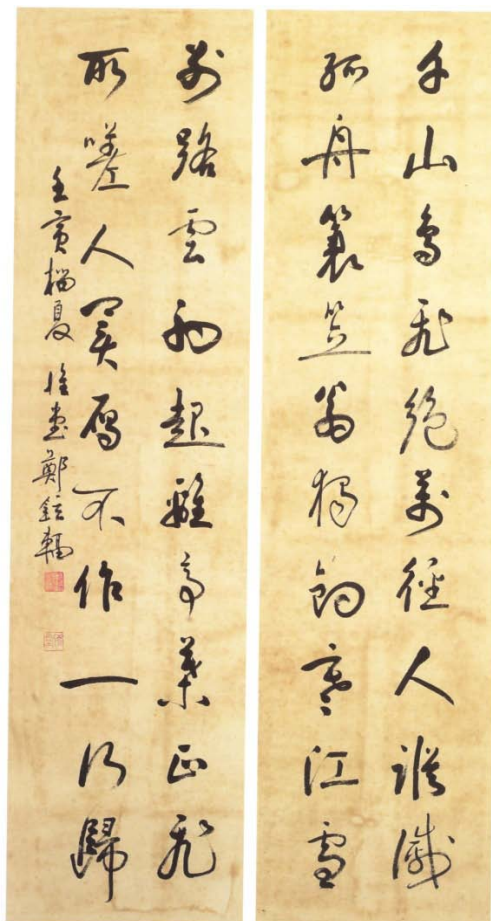 千山鳥飛絶萬徑人蹤滅
孤舟簑笠翁獨釣寒江雪
別路雲初起離亭葉正飛
所嗟人異鴈不作一行歸
壬寅榴夏 惟堂鄭鉉輻